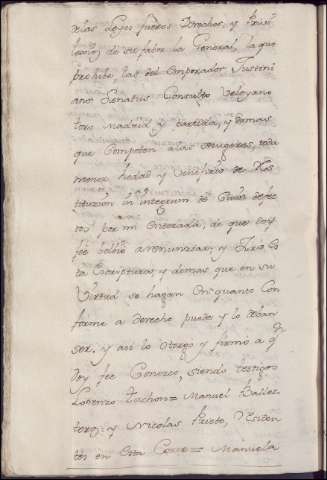 las Leyes fueros Drechos, y Privi
legios de su favor la General, la que
prohibe, las del Emperador Justini
ano Senatus Consulto Veleyano
toro Madrid y partida, y demas
que competen a las Mugeres, toda
menor hedad y veneficio de Res
titucion in integrum de Cuios efec
tos por mi Enterada, de que doy
fee bolbio a renunziar, y Juro Es
ta Escriptura, y demas que en su
Virtud se hagan en quanto con
forme a derecho puede y lo
ser. y asi lo otorgo y firmo a qn
doy fee Conozco, siendo testigos
Lorenzo Manuel Balles
teros y Nicolas Prieto, residen
tes en esta Corte = Manuela